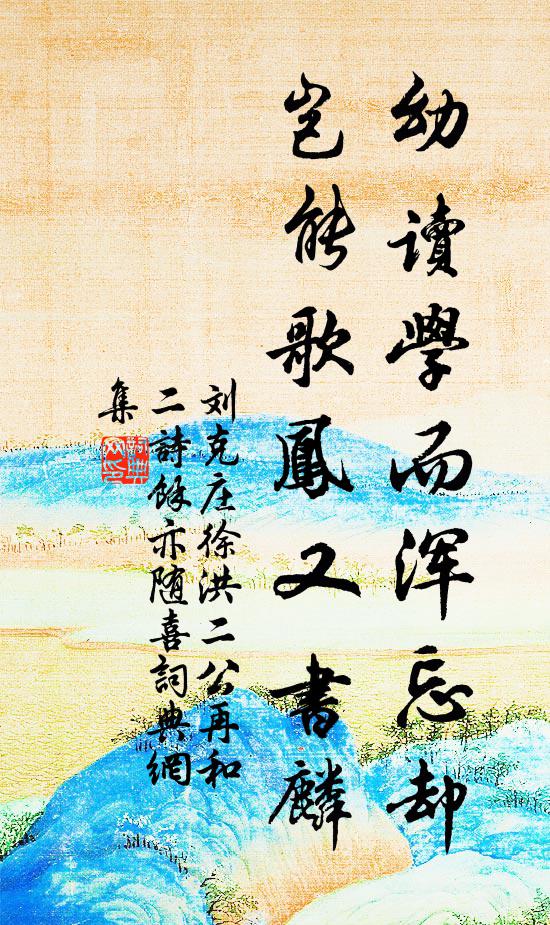 幼讀學而浑忘却
岂能歌鳳又書麟
刘克庄徐洪二公再和
二詩餘亦随喜詞典網
集